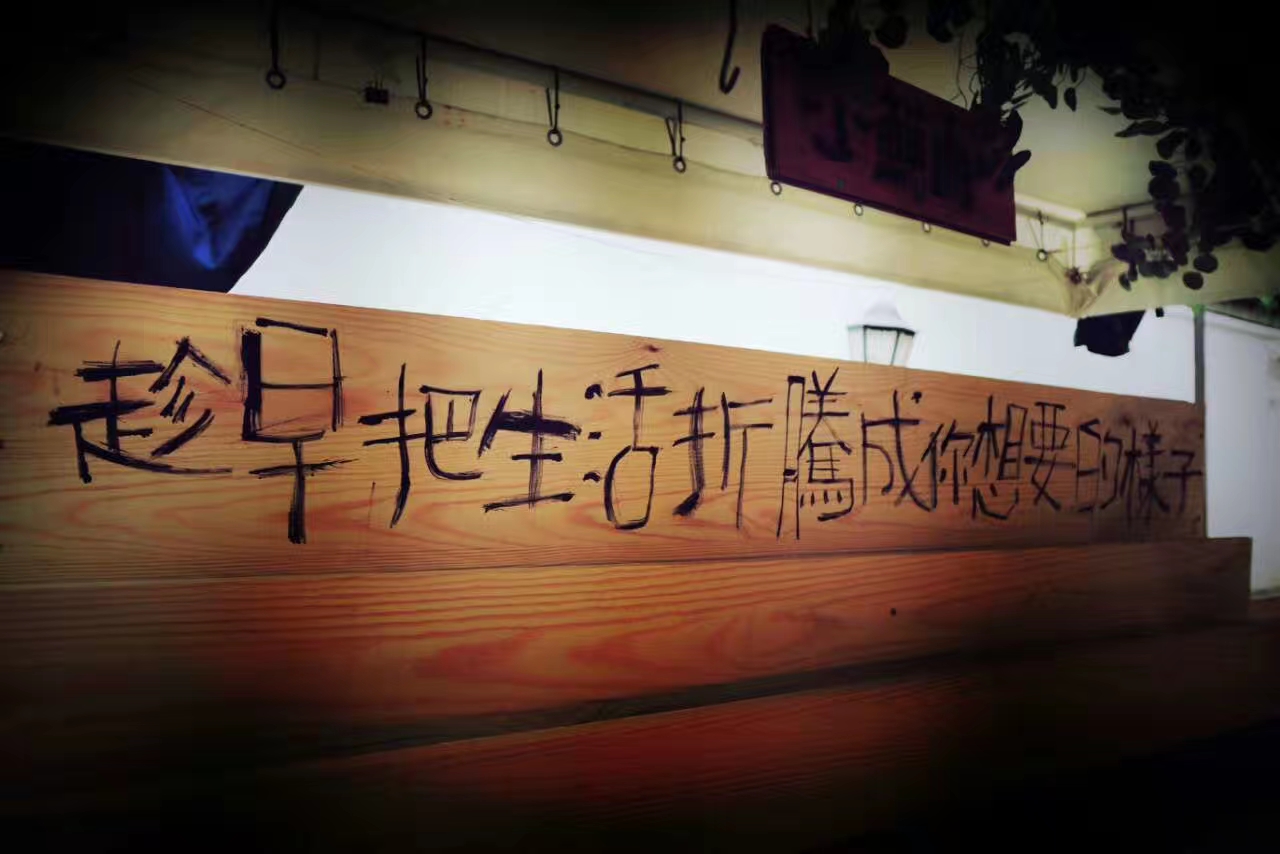 趁早把生活折騰成你想要的樣子